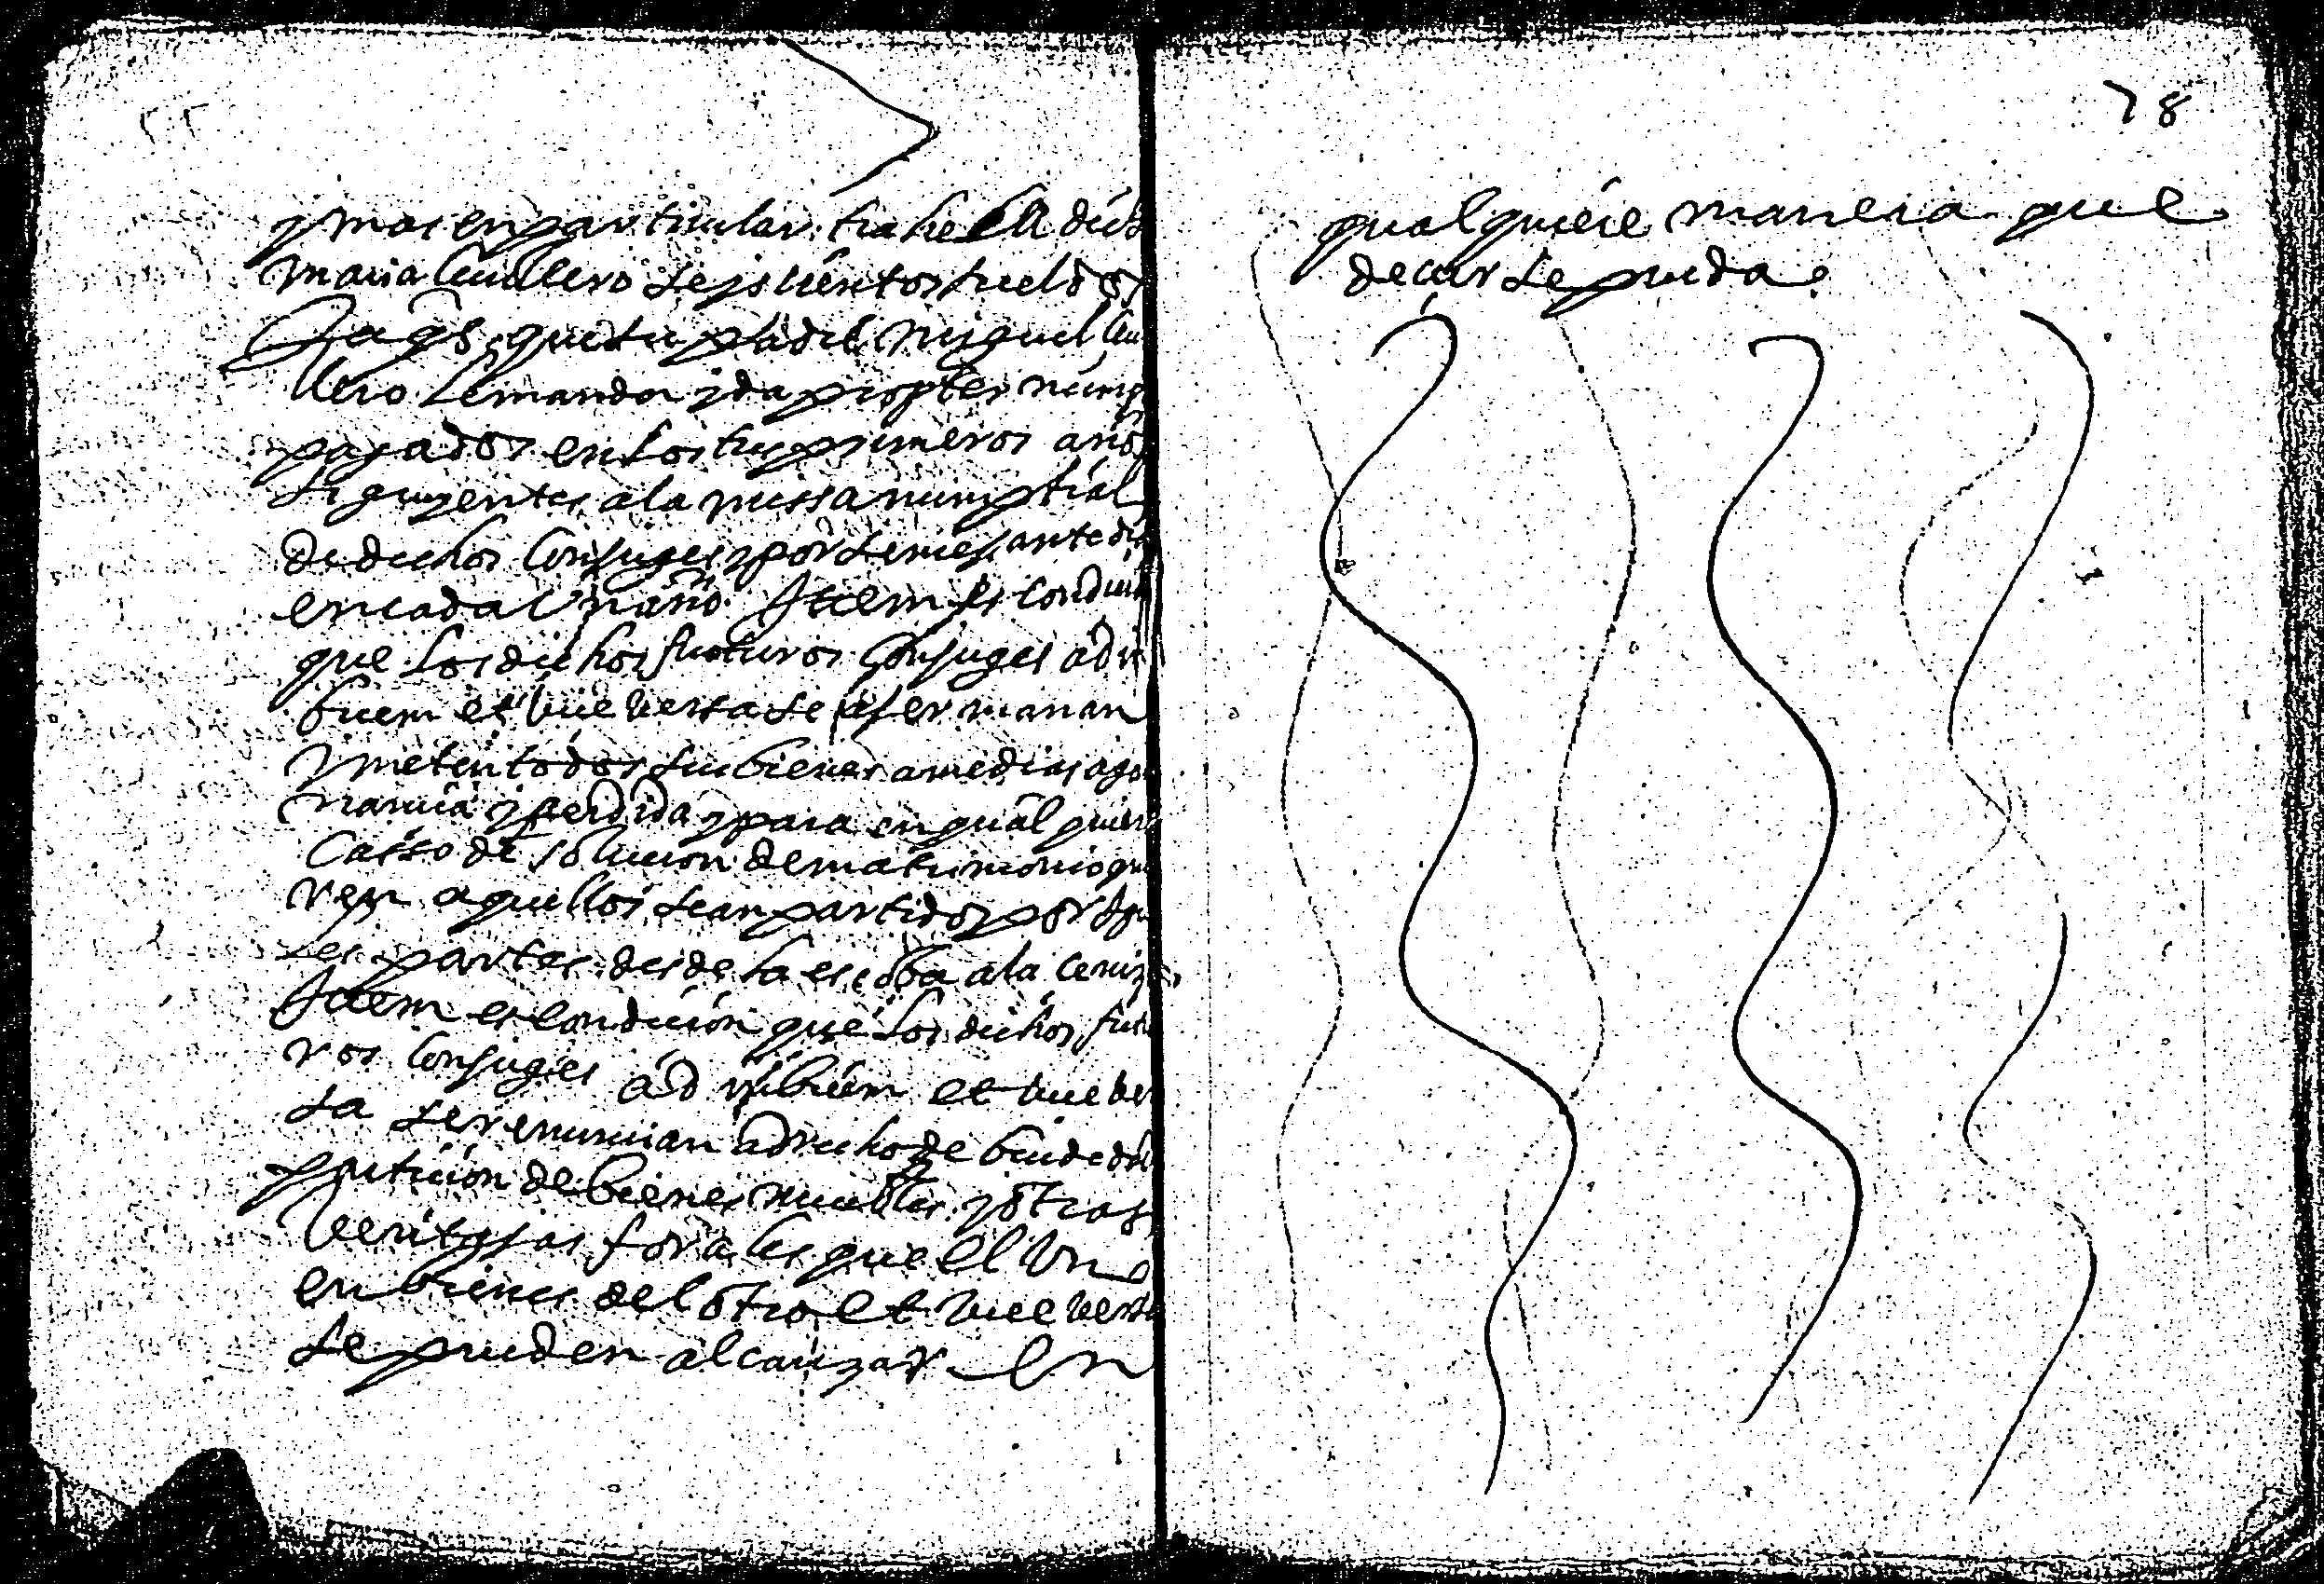 78
y mas en particular trahe la dich
maria Cuullero seys cientos sueldos
Jaqs que su padre miguel Cuu
llero le manda y da propter nump
pagados en los tres primeros años
siguyentes a la missa numptial
de dichos Conjuges y por semej ante dia
en cada Un año Item es condicio
que los dichos fucturos Conjuges ad in
buem et vice versa se ajermanan
y meten todos sus bienes a medias a ga
nancia y perdida y para en qual quiera
Casso de solucion de matrimonio que
ren aquellos sean partidos por Igua
les partes desde la escoba a la ceniza
Item es condicion que los dichos futu
ros Conjuges ad inbicem et vice ver
sa se renuncian a drecho de biudedad
particion de bienes muebles y otras
Ventajas forales que el Uno
en bienes del otro et vice versa
se pueden alcanzar En
qual quiere manera que
decir se pueda